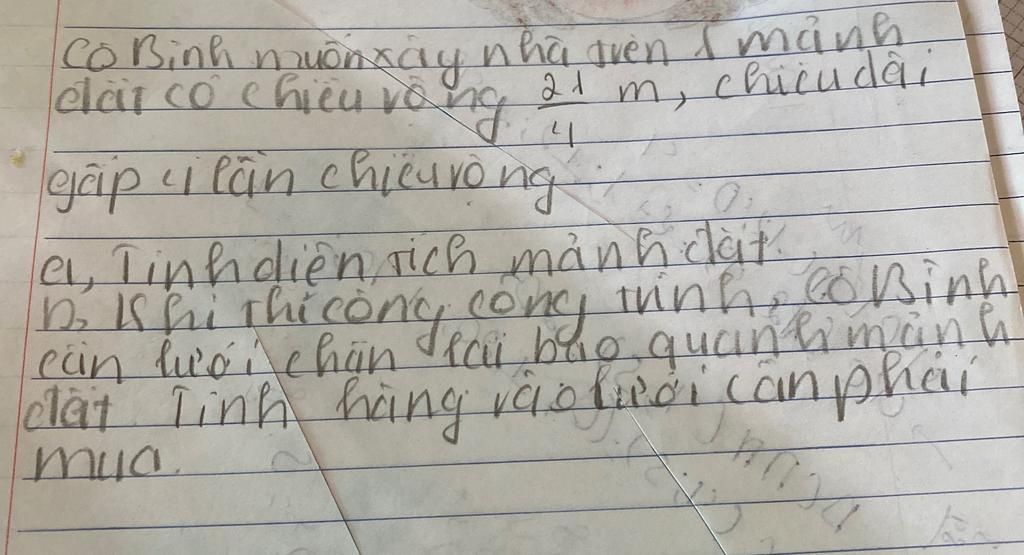 Cô Bình muốn xây nhà trên 1 mảnh
đất có chiều rộng 21/4 m, chiều dài
gấp 4 lần chiều rộng
a, Tính diện tích mảnh đất.
b, Khi thi công, công trình, cô Bình
cần lưới chắn lại bao quanh mảnh
đất Tính hàng rào lưới cần phải
mua.